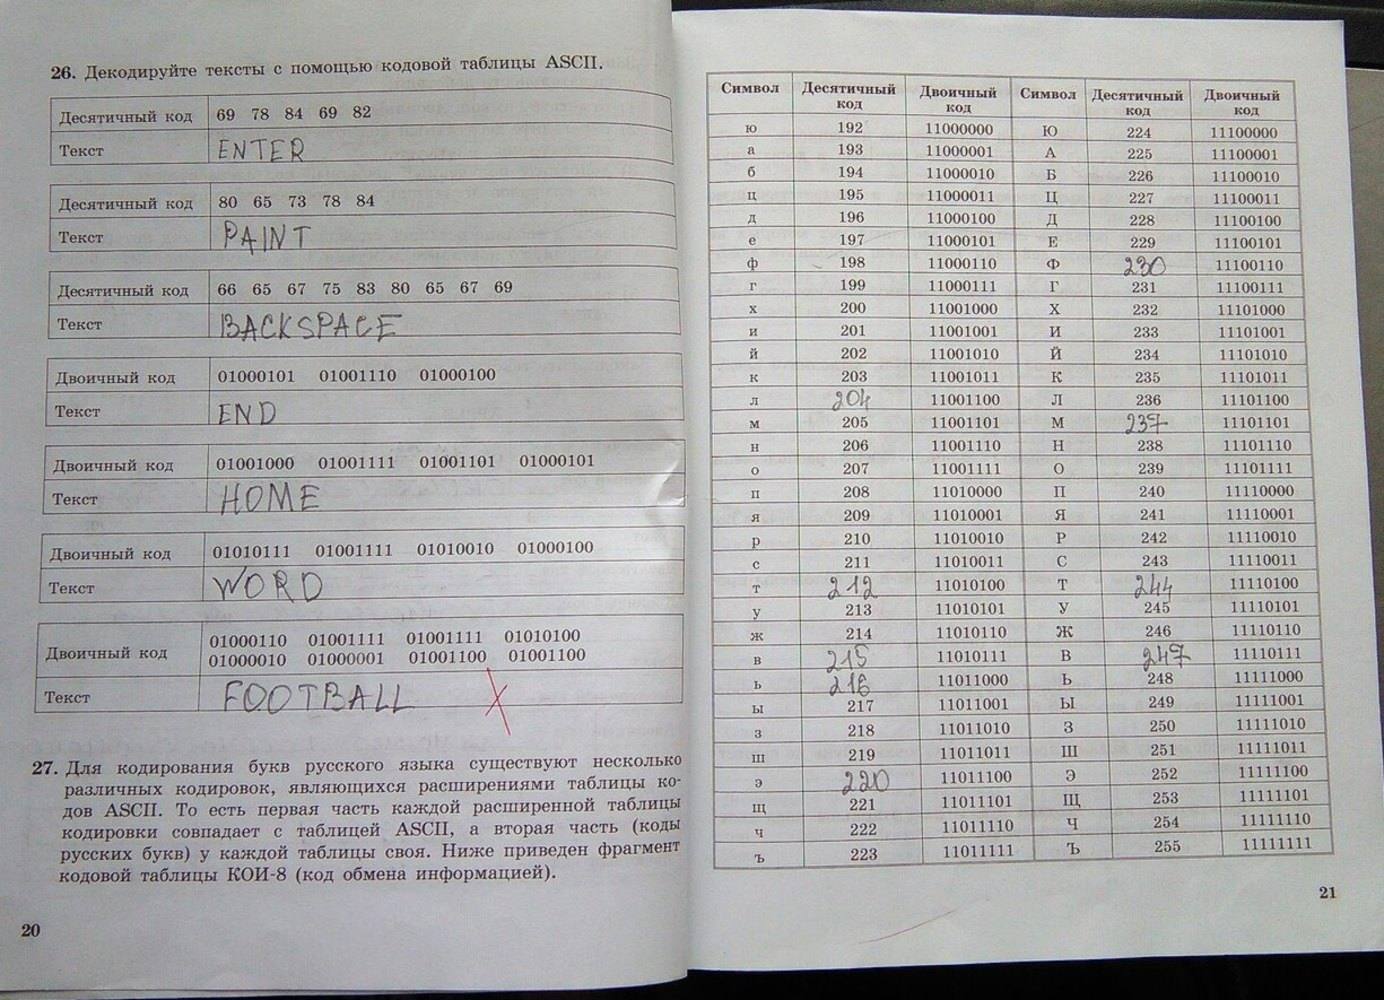 26. Декодируйте тексты с помощью кодовой таблицы ASCII.
Десятичный код 69 78 84 69 82
Текст ENTER
Десятичный код 80 65 73 78 84
Текст PAINT
Десятичный код 66 65 67 75 83 80 65 67 69
Текст BACKSPACE
Двоичный код 01000101 01001110 01000100
Текст END
Двоичный код 01001000 01001111 01001101 01000101
Текст HOME
Двоичный код 01010111 01001111 01010010 01000100
Текст WORD
Двоичный код 01000110 01001111 01001111 01010100
01000010 01000001 01001100 01001100
Текст FOOTBALL
27. Для кодирования букв русского языка существуют несколько
различных кодировок, являющихся расширениями таблицы ко-
дов ASCII. То есть первая часть каждой расширенной таблицы
кодировки совпадает с таблицей ASCII, а вторая часть (коды
русских букв) у каждой таблицы своя. Ниже приведен фрагмент
кодовой таблицы КОИ-8 (код обмена информацией).
20
Символ Десятичный код Двоичный код Символ Десятичный код Двоичный код
ю 192 11000000 Ю 224 11100000
а 193 11000001 А 225 11100001
б 194 11000010 Б 226 11100010
ц 195 11000011 Ц 227 11100011
д 196 11000100 Д 228 11100100
е 197 11000101 Е 229 11100101
ф 198 11000110 Ф 230 11100110
г 199 11000111 Г 231 11100111
х 200 11001000 Х 232 11101000
и 201 11001001 И 233 11101001
й 202 11001010 Й 234 11101010
к 203 11001011 К 235 11101011
л 204 11001100 Л 236 11101100
м 205 11001101 М 237 11101101
н 206 11001110 Н 238 11101110
о 207 11001111 О 239 11101111
п 208 11010000 П 240 11110000
я 209 11010001 Я 241 11110001
р 210 11010010 Р 242 11110010
с 211 11010011 С 243 11110011
т 212 11010100 Т 244 11110100
у 213 11010101 У 245 11110101
ж 214 11010110 Ж 246 11110110
в 215 11010111 В 247 11110111
ь 216 11011000 Ь 248 11111000
ы 217 11011001 Ы 249 11111001
з 218 11011010 З 250 11111010
ш 219 11011011 Ш 251 11111011
э 220 11011100 Э 252 11111100
щ 221 11011101 Щ 253 11111101
ч 222 11011110 Ч 254 11111110
ъ 223 11011111 Ъ 255 11111111
21